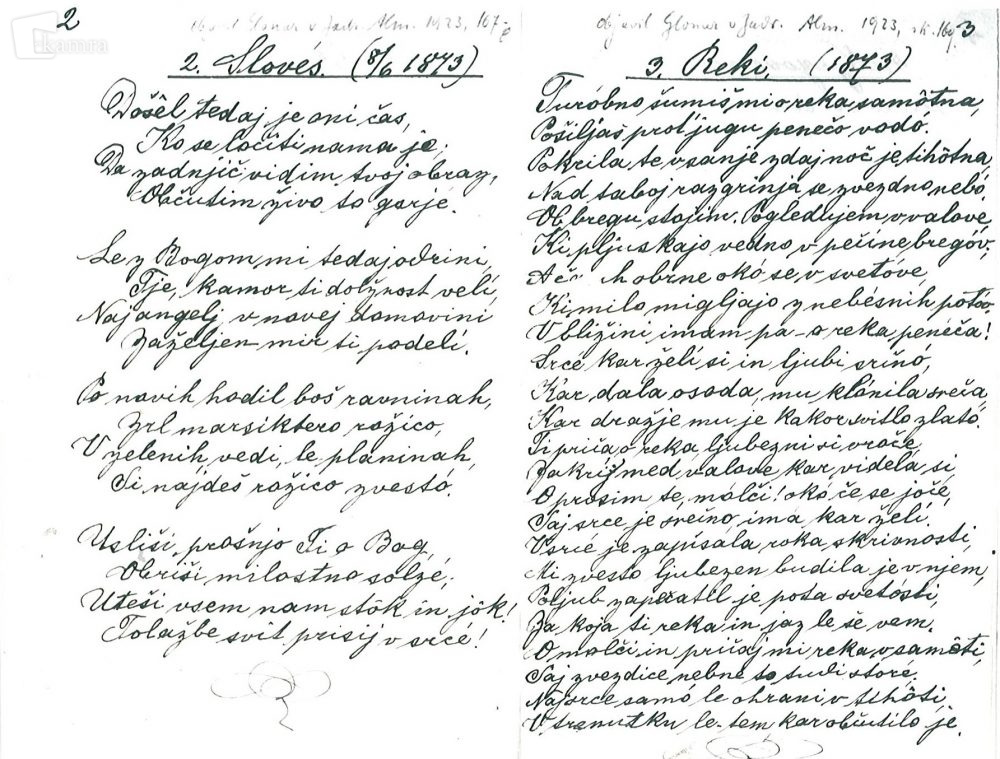 2
kamra
objavil Glonar v Jadr. Alm. 1923, 167-
2. Slovés. (8/6 1873)
Došêl tedaj je oni čas,
Ko se ločiti nama je;
Da zadnjič vidim tvoj obraz,
Občutim živo to gorjé.
Le z Bogom mi tedaj odrini,
Tje, kamor ti dolžnost velí,
Naj angelj v novej domovini
Zaželjen mir ti podelí.
Po novih hodil boš ravninah,
Zrl marsiktero rožico,
V zelenih vedi, le planinah,
Si najdeš rožico zvestó.
Usliši, prošnjo Ti o Bog,
Obriši milostno solzé;
Uteši vsem nam stôk in jôk!
Tolažbe svit prisij v srcé!
objavil Glonar v Jadr. Alm. 1923, str. 169.
3
3. Reki. (1873)
Turóbno šumiš mi o reka samôtna,
Pošiljaš prot' jugu penečo vodó.
Pokrila te v sanje zdaj noč je tihôtna,
Nad taboj razgrinja se zvezdno nebó.
Ob bregu stojim. Pogledujem v valove,
Ki pljuskajo vedno v pečíne bregóv;
A obrne okó se, v svetóve
Ki milo migljajo z nebésnih
V bližini imam pa - o reka penéča!
Srce kar želí si in ljubi srčnó,
Kar dala osoda, mu klónila sreča
Kar dražje mu je kakor svitlo zlató.
Ti priča o reka ljubezni si vroče,
Za križ med valove kar videla si,
O prosim te, mólči! oko če se joče,
Saj srce je srečno íma kar želí.
V srcé je zapisála roka skrivnosti,
Mi zvesto ljubezen budila je v njem,
Poljub zapečatil je póta svetósti,
Za koja ti reka in jaz le še vem.
O molči in pričaj mi reka v samôti,
Saj zvezdice nebne to tudi storé.
Naj srce samó le ohrani v tihôti,
V trenutku le-tem kar občutilo je.